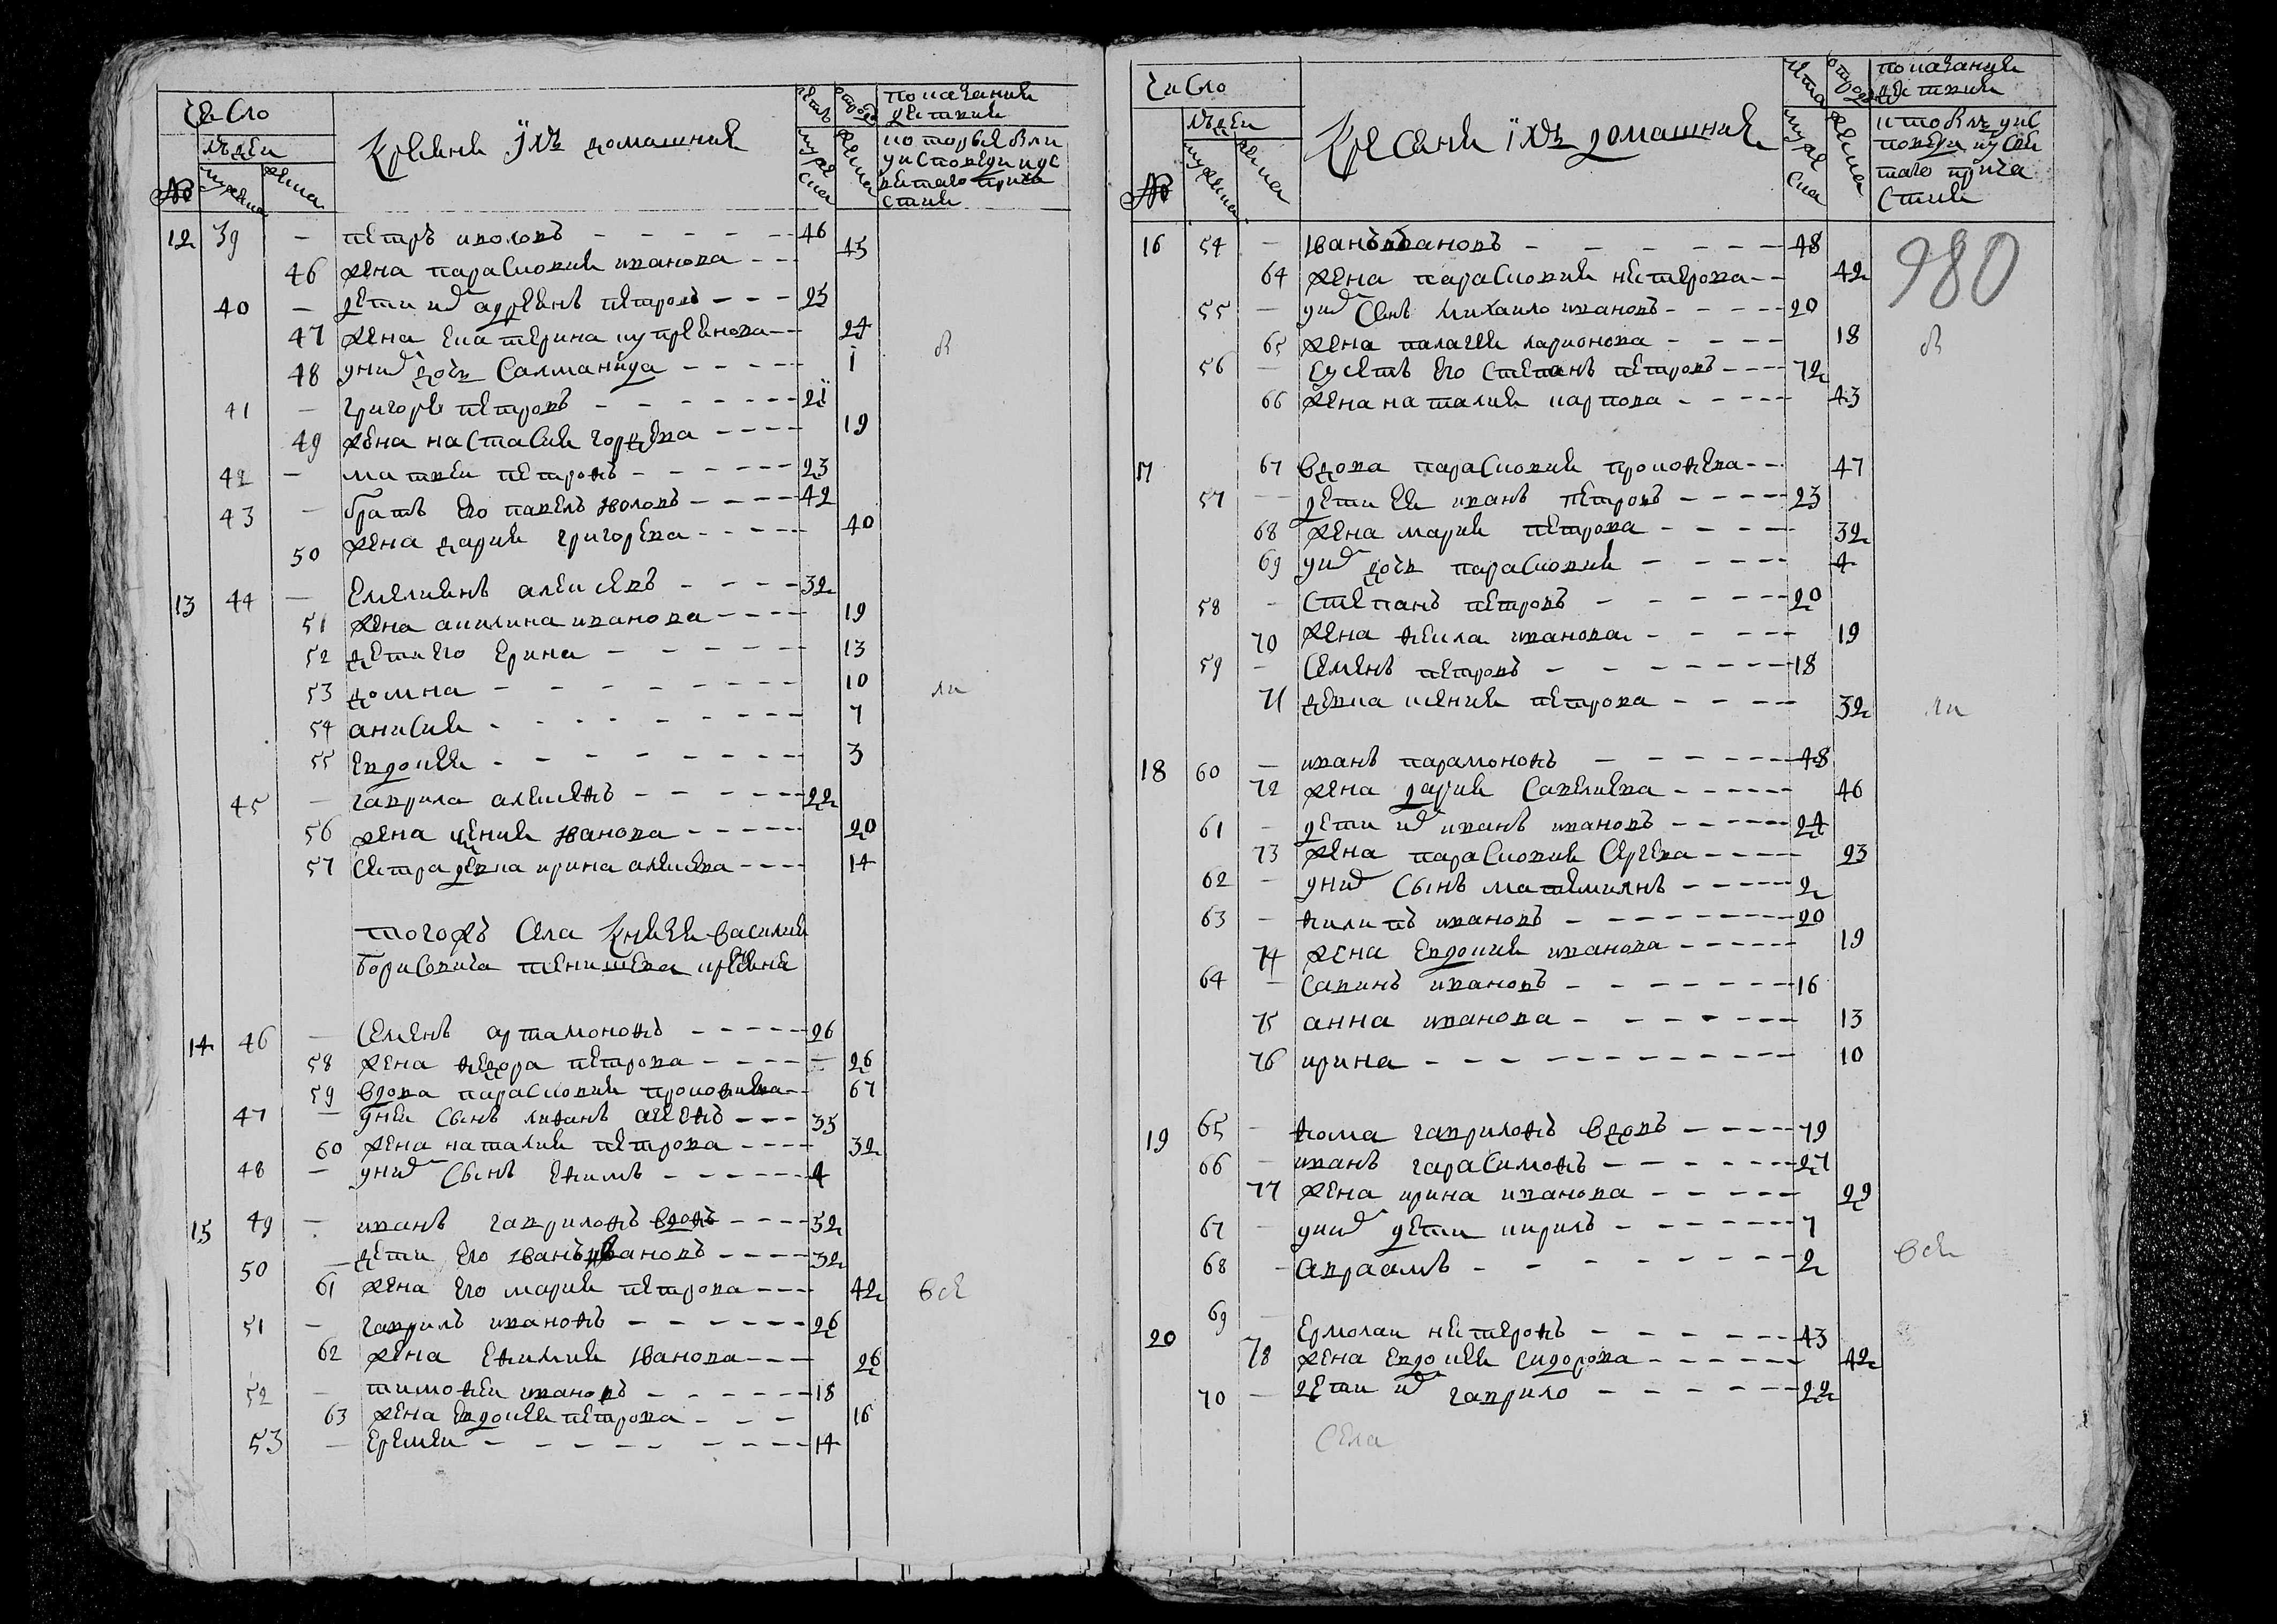 Число
людей
№
мужеска
женска
Крестьяня ихъ домашния
лета
мужеска
от рожд
женска
показания
действия
12 39 — петръ иковлевъ — 46
46 жена парасковия иванова — 45
40 — дети их андреянъ петровъ — 25
47 жена екатерина куприянова — 24
48 у них дочь Саламанида — 1
41 — григореи петровъ — 21
49 жена настасия гордеева — 19
42 — матвеи петровъ — 23
43 — братъ его павелъ — 42
50 жена дария григорева — 40
13 44 — Емелиянъ алексеевъ — 32
51 жена акилина иванова — 19
52 дети его Ерина — 13
53 домна — 10
54 анисия — 7
55 Евдокия — 3
45 — гаврила алексеевъ — 22
56 жена ксения иванова — 20
57 Сестра девка ирина алексеева — 14
в
ли
тогожъ Села Княжя василия
борисовича тенишева крестьяня
14 46 — Семенъ артамоновъ — 26
58 жена федора петрова — 26
59 вдова парасковия прокофиева — 67
47 — у неи Сынъ 35
60 жена наталия петрова — 32
48 — у них Сынъ Ефимъ — 4
15 49 — иванъ гавриловъ вдовъ — 52
50 — дети его иванъ ивановъ — 32
61 жена его мария петрова — 42
все
51 — гаврилъ ивановъ — 26
62 жена Ефимия иванова — 26
52 — тимофеи ивановъ — 18
63 жена Евдокия петрова — 16
53 — Еремеи — 14
Число
людей
№
мужеска
женска
Крестьяня ихъ домашния
лета
мужеска
от рожд
женска
показания
действия
980
16 54 — иванъ ивановъ — 48
64 жена парасковия нестерова — 42
55 — у них Сынъ михаило ивановъ — 20
65 жена палагея ларионова — 18
в
56 — Суседъ его Степанъ петровъ — 72
66 жена наталия карпова — 43
17 67 вдова парасковия прокофева — 47
57 — дети ея иванъ петровъ — 23
68 жена мария петрова — 32
69 у них дочь парасковия — 4
58 — Степанъ петровъ — 20
70 жена фекла иванова — 19
59 — Семенъ петровъ — 18
71 девка ксения петрова — 32
ли
18 60 — иванъ парамоновъ — 48
72 жена дария Савелиева — 46
61 — дети их иванъ ивановъ — 24
73 жена парасковия Сергева — 23
62 — у них Сынъ — 2
63 — филипъ ивановъ — 20
74 жена Евдокия иванова — 19
64 — Савинъ ивановъ — 16
75 анна иванова — 13
76 ирина — 10
19 65 — фома гавриловъ вдовъ — 79
66 — иванъ гарасимовъ — 27
77 жена ирина иванова — 29
67 — у них дети кирилъ — 7
68 — авраамъ — 2
все
20 69 — Ермолаи нестеровъ — 43
78 жена Евдокия Сидорова — 42
70 — дети их гаврило — 22
Села